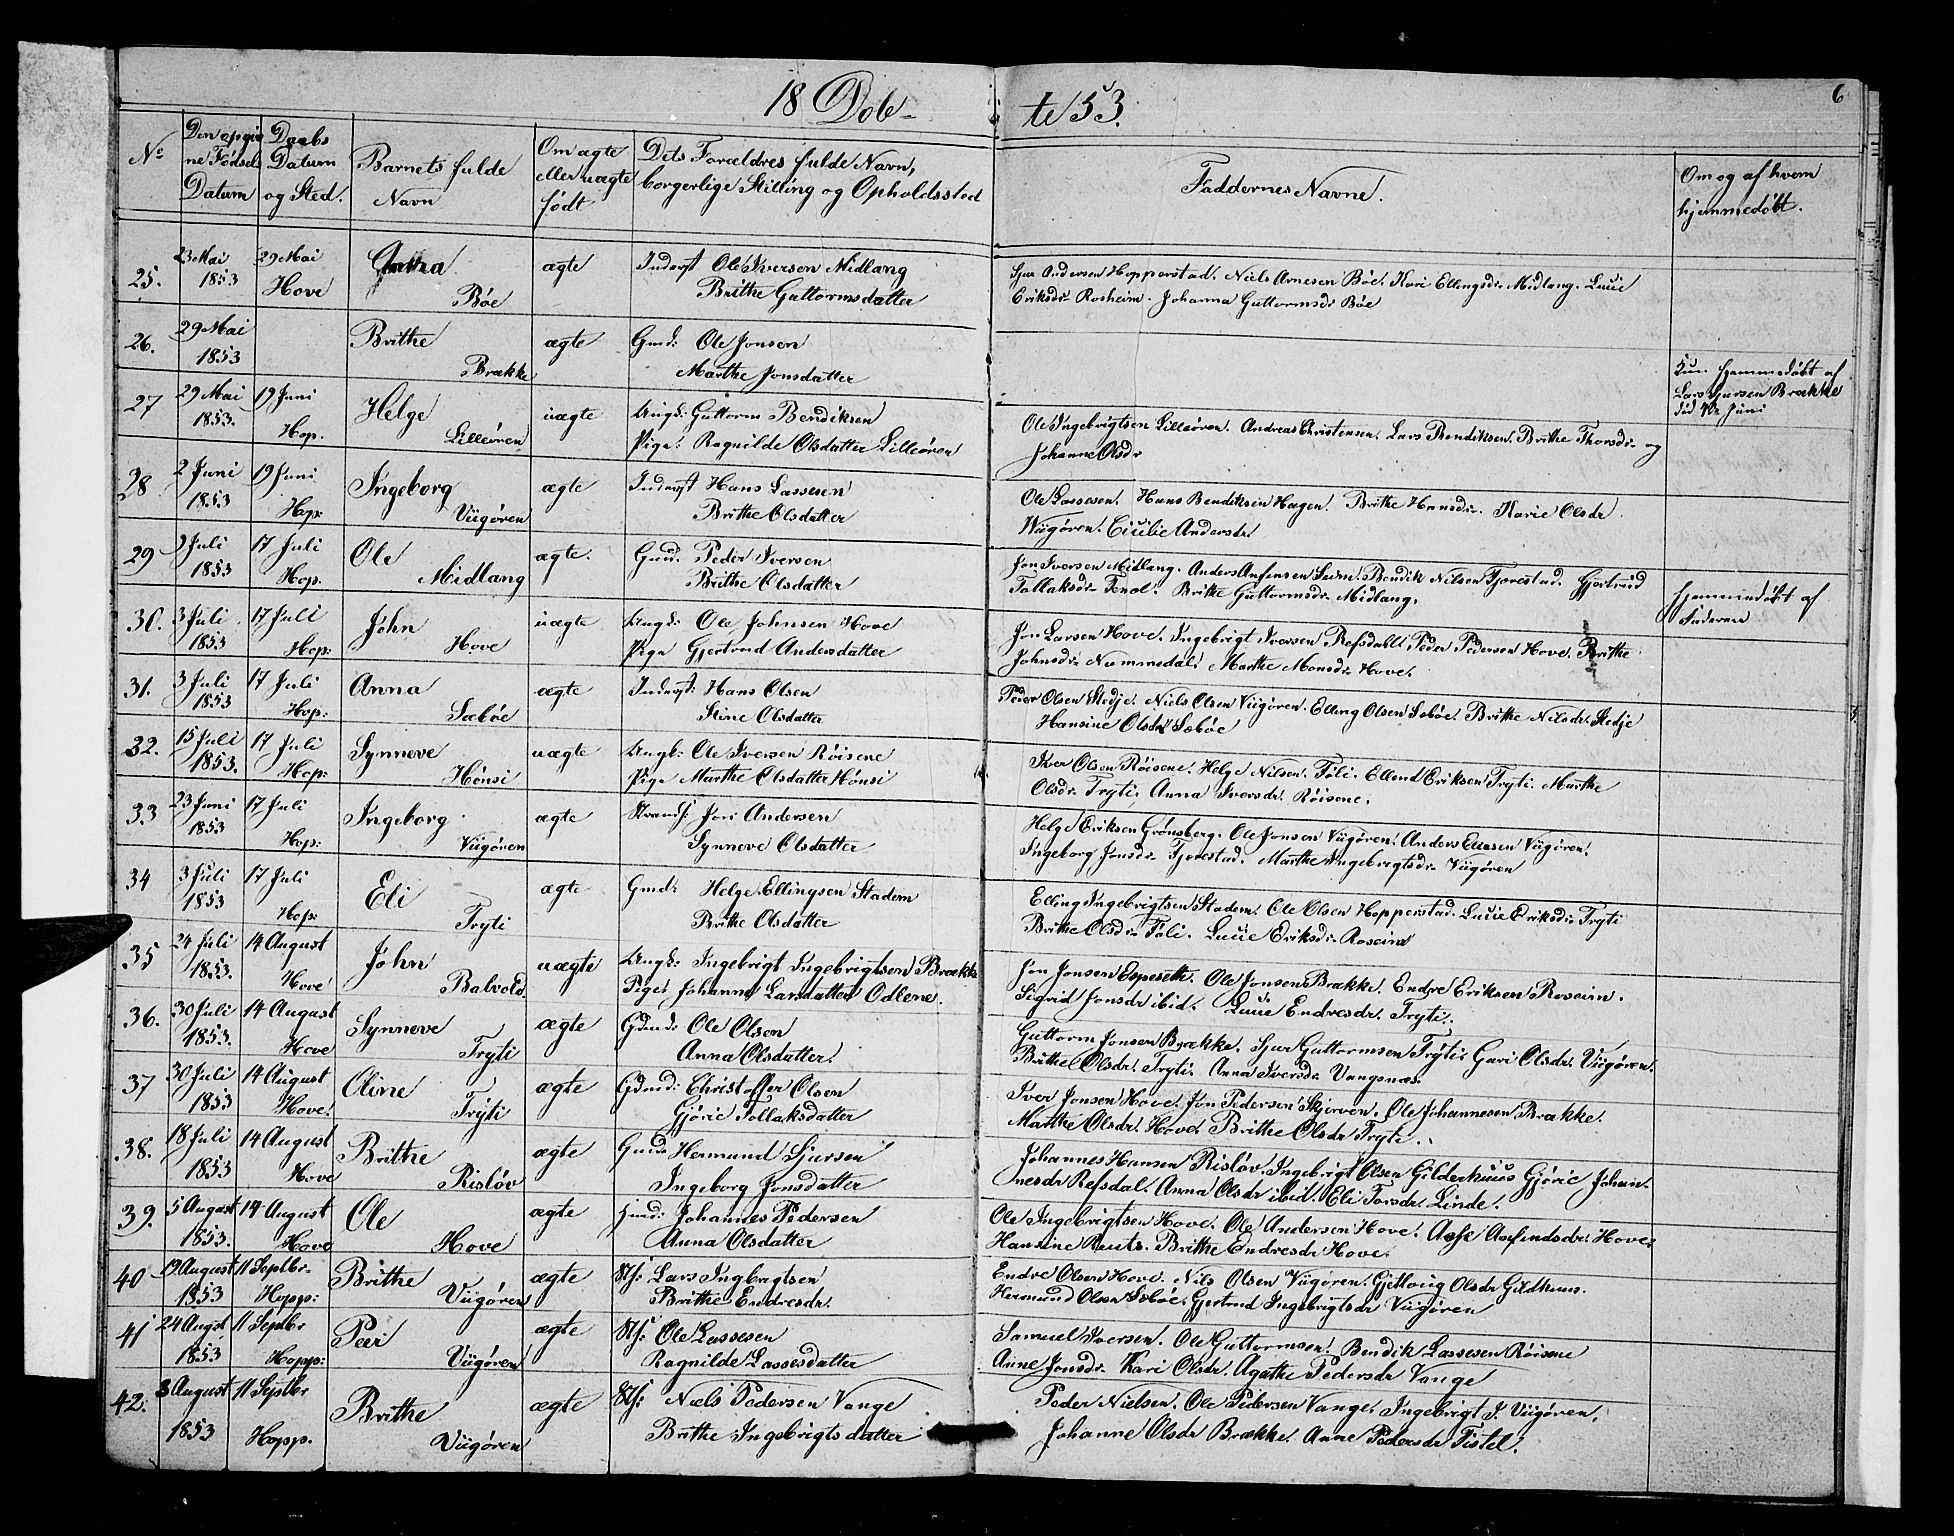 18 Døb-
te 53.
6
No
Den opgiv
ne Fødsels
Datum
Daabs
Datum
og Sted.
Barnets fulde
Navn
Om ægte
eller uægte
født
Dets Forældres fulde Navn,
borgerlige Stilling og Opholdssted
Faddernes Navne.
Om og af hvem
hjemmedøbt.
25. 23 Mai 29 Mai Anna ægte Inderst Ole Iversen Midlang
1853 Hove Bøe Brithe Guttormsdatter
Sjur Andersen Hopperstad. Niels Arnesen Bøe. Kari Ellingsdr Midlang. Lucie
Eriksdr Rosheim. Johanna Guttormsdr Bøe
26. 29 Mai Brithe ægte Gmd: Ole Jonsen
1853 Brække Marthe Jonsdatter
Kun hjemmedøbt af
Lars Sjursen Brække
Juni
27 29 Mai 19 Juni Helge uægte Ungk: Guttorm Bendiksen
1853. Hop. Lilleøren Pige: Ragnilde Olsdatter Lilleøren
Ole Ingebrigtsen Lilleøren. Andreas Christensen. Lars Bendiksen. Brithe Thorsdr og
Johanne Olsdr
28 2 Juni 19 Juni Ingeborg ægte Inderst Hans Lassesen
1853 Hop: Viigøren Brithe Olsdatter
Ole Lassesen. Hans Bendiksen Hagen. Brithe Hansdr. Karie Olsdr
Wiigøren. Cicilie Andersdr.
29 9 Juli 17 Juli Ole ægte. Gmd. Peder Iversen
1853 Hop. Midlang Brithe Olsdatter
Jon Iversen Midlang. Anders Anfinsen Bendik Nilsen Tjorestad. Gjertrud
Tollaksdr Brithe Guttormsdr Midlang.
Hjemmedøbt af
Faderen
30. 3 Juli 17 Juli John uægte Ungk: Ole Johnsen Hove
1853 Hop: Hove Pige Gjertrud Andersdatter
Jon Larsen Hove. Ingebrigt Iversen Refsdall. Peder Pedersen Hove. Brithe
Johnsdr Nummedal. Marthe Monsdr Hove.
31. 3 Juli 17 Juli Anna ægte Inderst: Hans Olsen
1853 Hop: Sæbøe Stine Olsdatter
Peder Olsen Stedje. Niels Olsen Viigøren. Elling Olsen Sæbøe. Brithe Nilsdr Stedje
Hansine Olsdr Sæbøe
32. 15 Juli 17 Juli Synneve uægte Ungk: Ole Iversen Røisene
1853. Hop: Hønsi Pige Marthe Olsdatter Hønsi
Iver Olsen Røisene. Helge Nilsen Føli. Ellend Eriksen Tryti. Marthe
Olsdr Tryti. Anna Iversdr Røisene.
33 23 Juni 17 Juli Ingeborg ægte Strands: Jon Andersen
1853 Hop: Viigøren Synneve Olsdatter
Helge Eriksen Grønsberg. Ole Jonsen Viigøren. Anders Viigøren.
Ingeborg Jonsdr Tjorestad. Marthe Ingebrigtsdr Viigøren
34 3 Juli 17 Juli Eli ægte Gmd: Helge Ellingsen Stadem
1853 Hop: Tryti Brithe Olsdatter
Elling Ingebrigtsen Stadem. Ole Olsen Hopperstad. Lucie Eriksdr Tryti
Brithe Olsdr Føli. Lucie Eriksdr Roseim
35 24 Juli 14 August John uægte Ungk: Ingebrigt Ingebrigtsen Brække
1853. Hove Balvold Pige: Johanne Larsdatter Odlene.
Jon Jonsen Espesette. Ole Jonsen Brække. Endre Eriksen Roseim.
Sigrid Jonsdr ibid. Lucie Endresdr. Tryti.
36. 30 Juli 14 August Synneve ægte Gdmd: Ole Olsen
1853. Hove Tryti Anna Olsdatter.
Guttorm Jonsen Brække. Sjur Guttormsen Tryti. Guri Olsdr. Viigøren.
Brithe Olsdr. Tryti. Anna Iversdr Vangsnæs
37 30 Juli 14 August Oline ægte Gdmd: Christoffer Olsen
1853 Hove. Tryti Gjørie Tollaksdatter
Iver Jonsen Hove. Jon Pedersen Skjerven. Ole Johannesen Brække.
Marthe Olsdr. Hove. Brithe Olsdr Tryti.
38. 18 Juli 14 August Brithe ægte Gmd: Hermund Sjursen
1853 Hove Risløv Ingeborg Jonsdatter
Johannes Hansen Risløv. Ingebrigt Olsen Gilderhuus Gjørie Johan-
nesdr Refsdal. Anna Olsdr ibid. Eli Torsdr. Linde.
39. 5 August 14 August Ole ægte Hmd: Johannes Pedersen
1853. Hove Hove Anna Olsdatter
Ole Ingebrigtsen Hove. Ole Andersen Hove. Aase Anfindsdr. Hove
Hansine Brithe Endresdr Hove.
40 19 August 11 Septbr. Brithe ægte Stf: Lars Ingbrigtsen
1853 Hopp: Viigøren Brithe Endresdr.
Endre Olsen Hove. Nils Olsen Viigøren. Gjetloug Olsdr Gildhuus.
Hermund Olsen Sæbøe. Gjertrud Ingebrigtsdr Viigøren
41 24 Augst 11 Septbr Peer ægte Stf: Ole Lassesen
1853 Hopp: Viigøren Ragnilde Lassesdatter
Samuel Iversen. Ole Guttormsen. Bendik Lassesen Røisene
Anne Jonsdr. Kari Olsdr. Agathe Pedersdr Vange
42. 3 August 11 Septbr Brithe ægte Stf: Niels Pedersen Vange
1853 Hopp. Viigøren Brithe Ingebrigtsdatter
Peder Nielsen. Ole Pedersen Vange. Ingebrigt I. Viigøren.
Johanne Olsdr Brække. Anne Pedersdr Tistel.